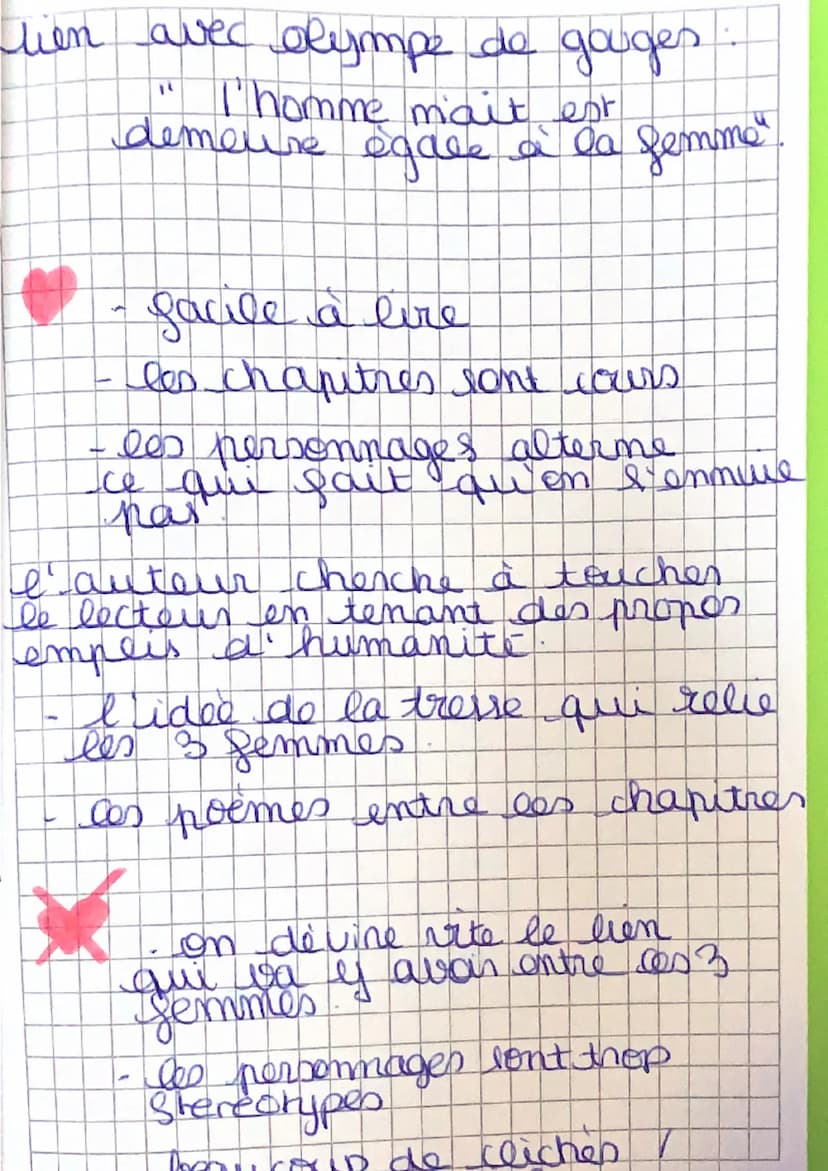 lien avec olympe de gouges :
" l'homme nait et
demeure égale à la femme".
- facile à lire
- les chapitres sont cours
- les personnages alterne
ce qui fait qu'on s'ennuie
pas.
l'auteur cherche à toucher
le lecteur en tenant des propos
empris d'humanité.
- l'idée de la tresse qui relie
les 3 femmes.
- les poèmes entre les chapitres
- on dévine vite le lien
qui va y avoir entre ces 3
femmes.
- les personnages sont trop
stéréotypes
beaucoup de clichés /